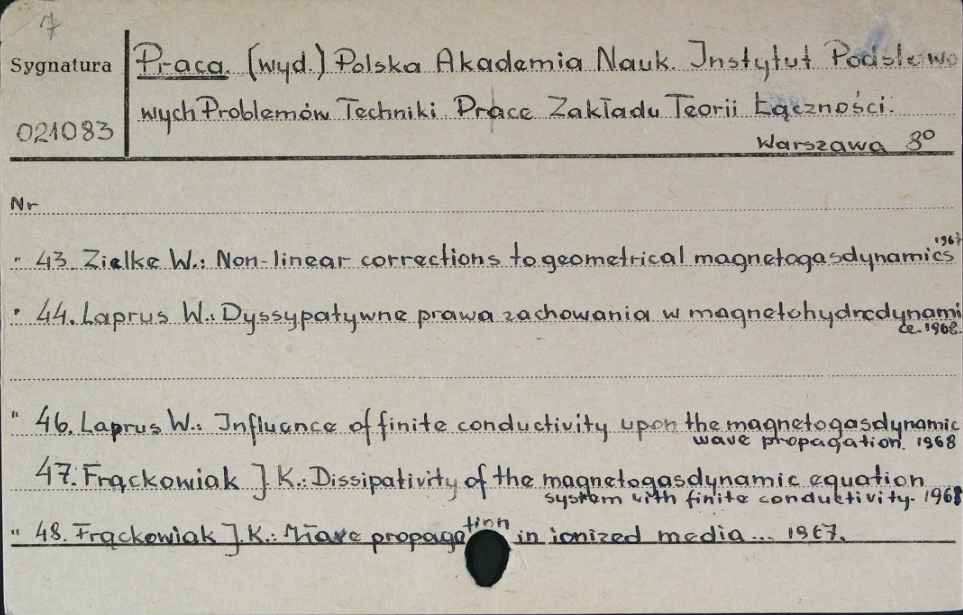 7
Sygnatura
021083
Praca. (wyd.) Polska Akademia Nauk. Instytut Podstawo
wych Problemów Techniki Prace Zakładu Teorii Łączności.
Warszawa 8°
Nr
" 43. Zielke W.: Non-linear corrections to geometrical magnetogasdynamics 1967
" 44. Laprus W.: Dyssypatywne prawa zachowania w magnetohydrodynami
ce. 1968.
" 46. Laprus W.: Influence of finite conductivity upon the magnetogasdynamic
wave propagation. 1968
47. Frąckowiak J K.: Dissipativity of the magnetogasdynamic equation
system with finite conductivity. 1968
" 48. Frąckowiak J.K.: Wave propagation in ionized media... 1967.